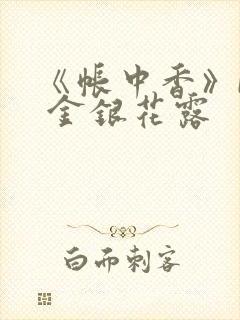 《帐中香》
金银花露
白而刺客